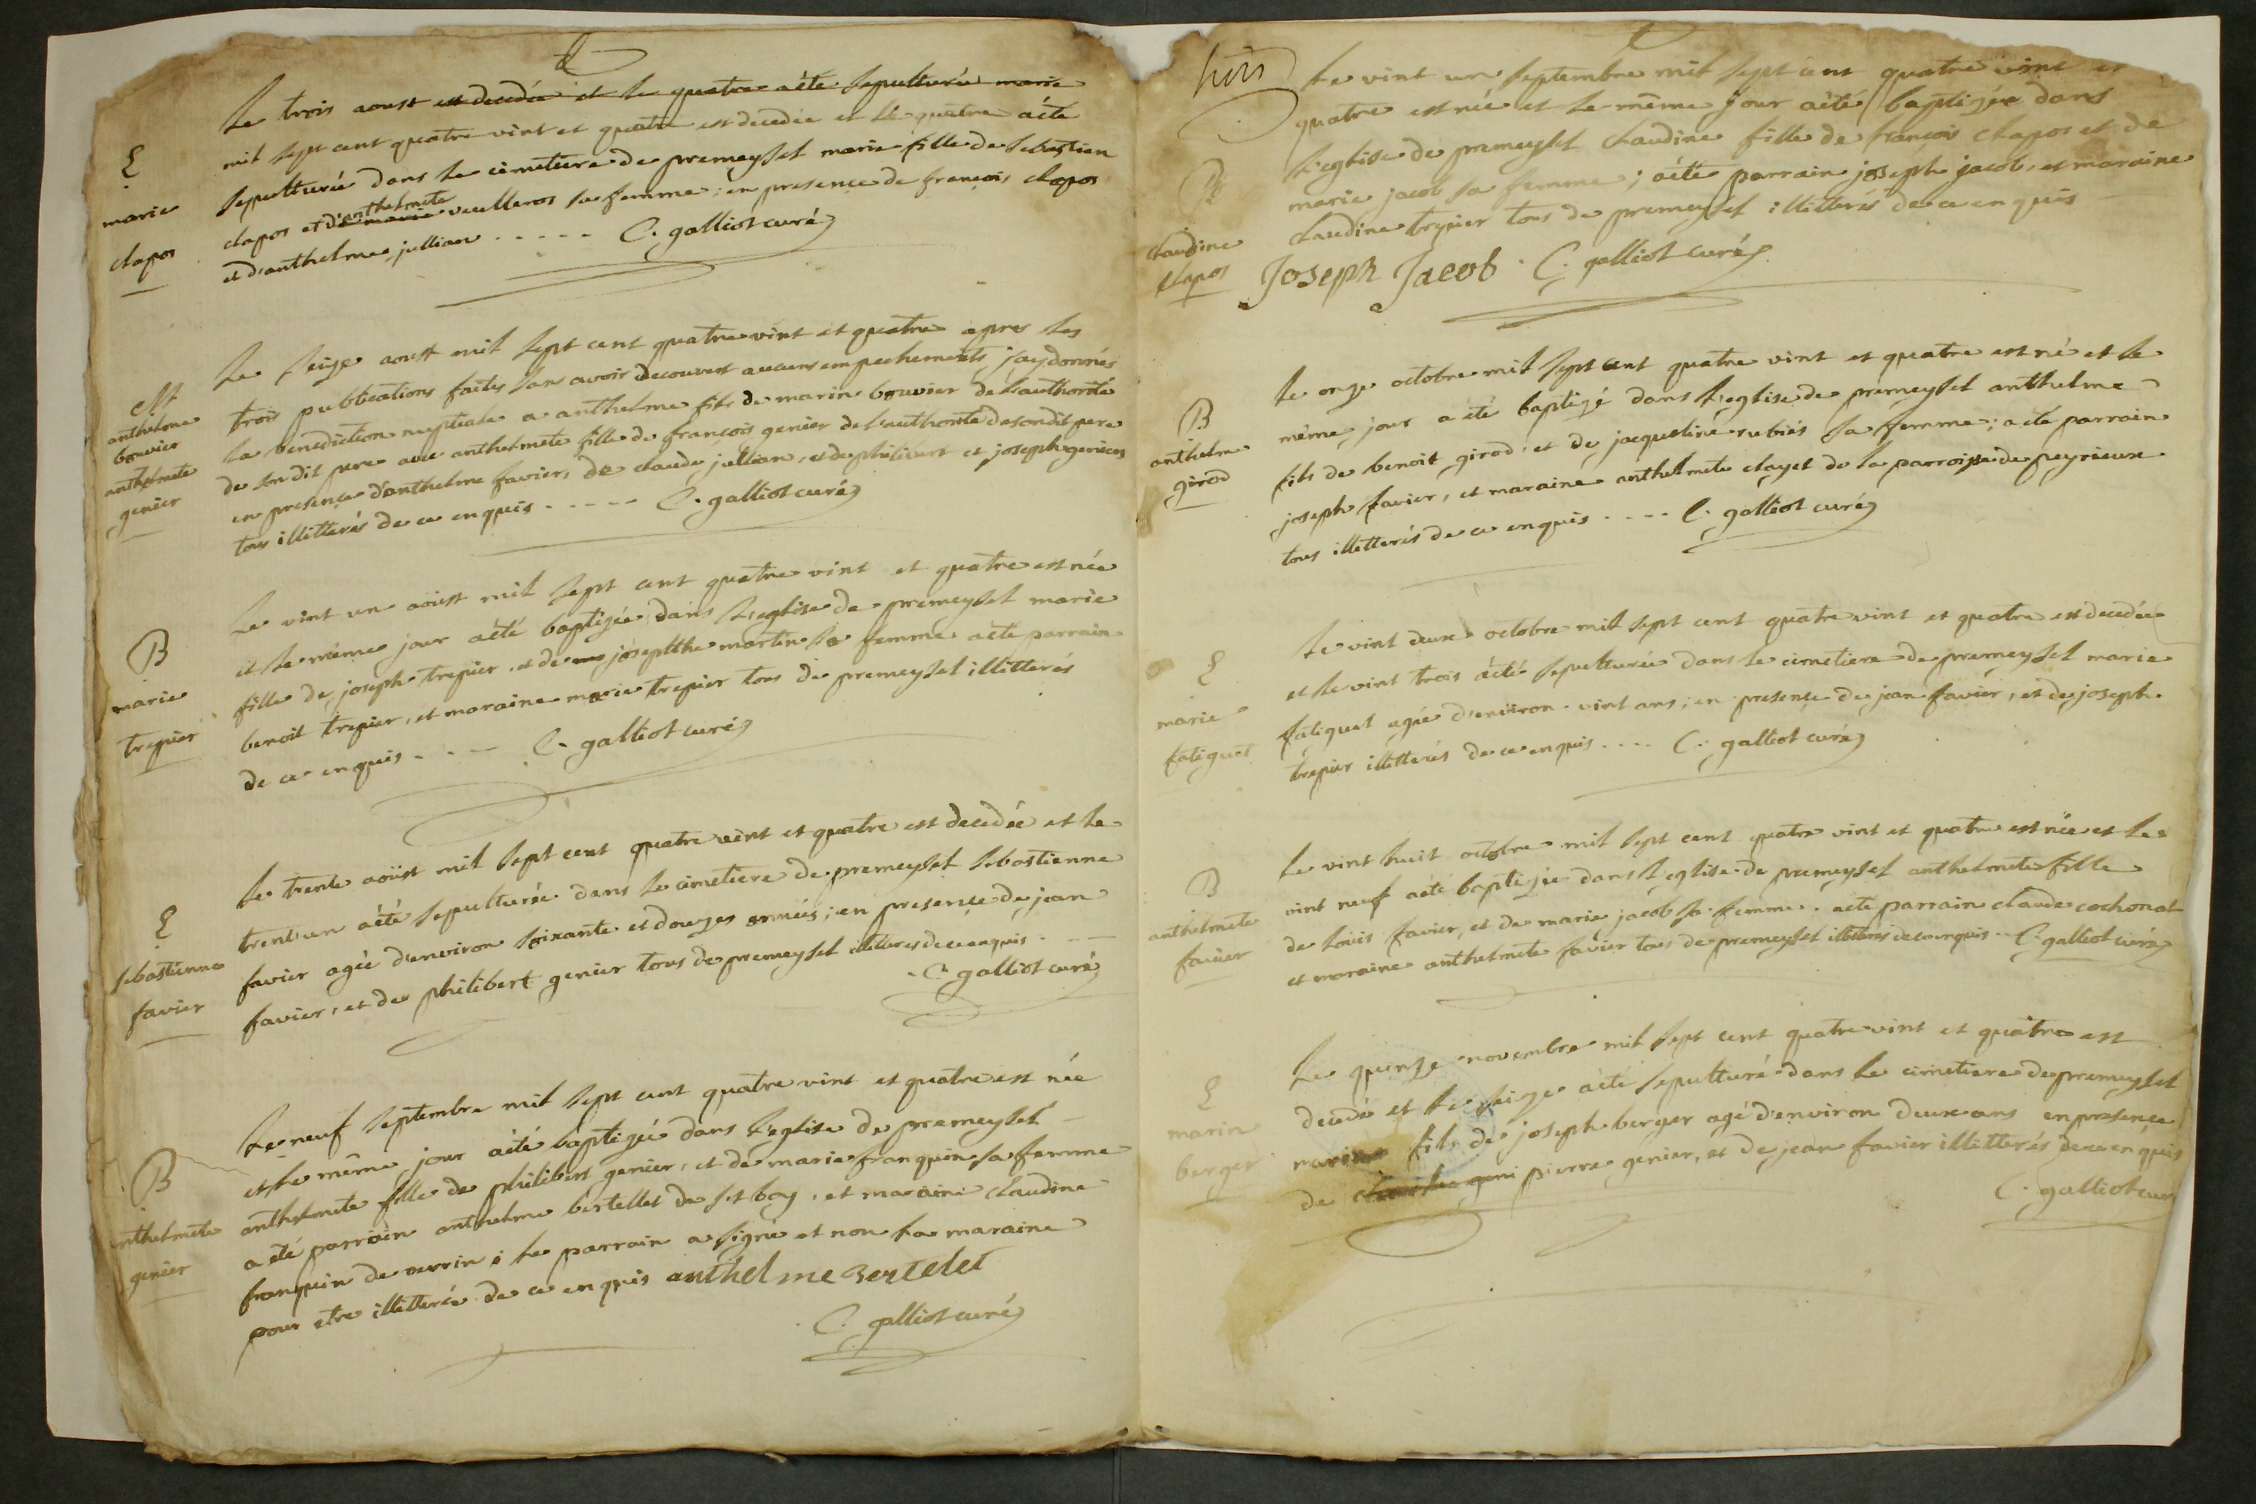 Le trois aoust est decedée et le quatre a été sepulturée marie
mil sept cent quatre vint et quatre est decedée et le quatre a été
sepulturée dans le cimetiere de premeyzel marie fille de sebastien
clapos et d'anthelmete veulleros sa femme ; en presence de françois clapos
et d'anthelme jullian ..... C. galliot curé
E
marie
clapos
Le seize aoust mil sept cent quatre vint et quatre apres les
trois publications faites sans avoir decouvert aucuns empechements j'ay donnés
la benediction nuptiale a anthelme fils de marin bouvier de l'authorité
de son dit pere avec anthelmete fille de françois genier de l'authorité de son dit pere
en presence d'anthelme favier, de claude jullian, et de philibert et joseph geniers
tous illitterés de ce enquis ..... C. galliot curé
M
anthelme
bouvier
anthelmete
genier
Le vint un aoust mil sept cent quatre vint et quatre est née
et le même jour a été baptizée dans l'eglise de premeyzel marie
fille de joseph trepier, et de josepthe martin sa femme a été parrain
benoit trepier, et maraine marie trepier tous de premeyzel illitterés
de ce enquis .... C. galliot curé
B
marie
trepier
Le trente aoust mil sept cent quatre vint et quatre est decedée et le
trent'un a été sepulturée dans le cimetiere de premeyzel sebastienne
favier agée d'environ soixante et douzes années ; en presence de jean
favier, et de philibert genier tous de premeyzel illiterés de ce enquis ...
C. galliot curé
E
sebastienne
favier
Le neuf septembre mil sept cent quatre vint et quatre est née
et le même jour a été baptizée dans l'eglise de premeyzel
anthelmete fille de philibert genier, et de marie franquin sa femme
a été parrain anthelme bertellet de st boy, et maraine claudine
franquin de verrin ; le parrain a signé et non la maraine
pour etre illitterée de ce enquis anthelme Bertelet
C. galliot curé
B
anthelmete
genier
trois
Le vint un septembre mil sept cent quatre vint et
quatre est née et le même jour a été baptizée dans
l'eglise de premeyzel claudine fille de françois clapos et de
marie jacob sa femme ; a été parrain joseph jacob, et maraine
claudine trepier tous de premeyzel illitterés de ce enquis
Joseph Jacob . C. galliot curé
B
claudine
clapos
Le onze octobre mil sept cent quatre vint et quatre est né et le
même jour a été baptizé dans l'eglise de premeyzel anthelme
fils de benoit girod et de jacqueline rubiés sa femme ; a été parrain
joseph favier, et maraine anthelmete clayet de la parroisse de peyrieux
tous illitterés de ce enquis .... C. galliot curé
B
anthelme
girod
Le vint deux octobre mil sept cent quatre vint et quatre est decedée
et le vint trois a été sepulturée dans le cimetiere de premeyzel marie
fatiguet agée d'environ vint ans ; en presence de jean favier, et de joseph
trepier illitterés de ce enquis .... C. galliot curé
E
marie
fatiguet
Le vint huit octobre mil sept cent quatre vint et quatre est née et le
vint neuf a été baptizée dans l'eglise de premeyzel anthelmete fille
de louis favier, et de marie jacob sa femme . a été parrain claude cochonat
et maraine anthelmete favier tous de premeyzel illitterés de ce enquis .. C. galliot curé
B
anthelmete
favier
Le quinze novembre mil sept cent quatre vint et quatre est
decedé et le seize a été sepulturé dans le cimetiere de premeyzel
marin fils de joseph berger agé d'environ deux ans en presence
de pierre genier, et de jean favier illitterés de ce enquis
C. galliot curé
E
marin
berger